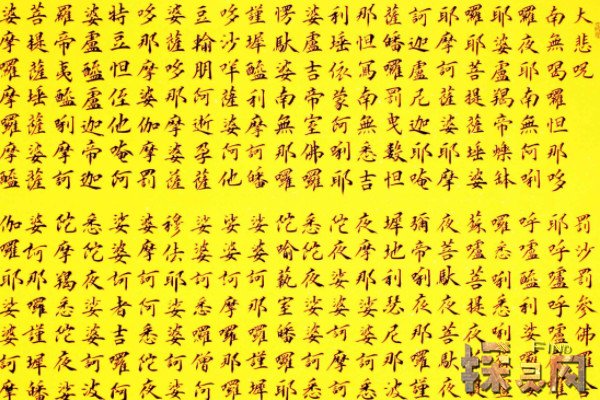 大悲咒
南無喝囉怛那哆
囉夜耶南無阿唎
耶婆盧羯帝爍缽
囉耶菩提薩埵婆
耶摩訶薩埵婆耶摩
訶迦盧尼迦耶唵
薩皤囉罰曳數怛
那怛寫南無悉吉
利埵伊蒙阿唎耶
婆盧吉帝室佛囉
愣馱婆南無那囉
謹墀醯利摩訶皤
哆沙咩薩婆阿他
豆輸朋阿逝孕薩
婆薩哆那摩婆薩
哆那摩婆伽摩罰
特豆怛侄他唵阿
婆盧醯盧迦帝迦
囉帝夷醯唎摩訶
菩提薩埵薩婆薩
婆摩囉摩囉摩醯
罰沙罰參佛囉舍
耶呼嚧呼嚧摩囉
呼嚧醯利娑囉娑
囉悉唎悉唎蘇嚧
蘇嚧菩提夜菩提
夜菩馱夜菩馱夜
彌帝唎夜那囉謹
墀地利瑟尼那波
夜摩那娑婆訶悉
陀夜娑婆訶摩訶
悉陀夜娑婆訶悉
陀喻藝室皤囉耶
娑婆訶那囉謹墀
娑婆訶摩囉那囉
娑婆訶悉囉僧阿
穆佉耶娑婆訶娑
婆摩訶阿悉陀夜
娑婆訶者吉囉阿
悉陀夜娑婆訶波
陀摩羯悉陀夜娑
婆訶那囉謹墀皤
伽囉耶娑婆訶摩
FIND
探灵网